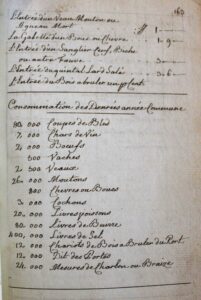 163
L'Entrée d'un Veau Mouton ou
Agneau Mort # 1
La Gabelle d'un Bouc ou Chevre 1 - 9
L'Entrée d'un Sanglier Cerf, Biche
ou autre fauve 3
L'Entrée du quintal Lard Salé 3 - 6
L'Entrée du Bois a bruler
Consommation des Denrées année Commune
80, 000 Coupes de Bled
7, 000 Chars de Vin
2, 000 Boeufs
500 Vaches
2, 500 Veaux
26, 000 Moutons
800 Chevres ou Boucs
3, 000 Cochons
20, 000 Livres poissons
80, 000 Livres de Beurre
400, 000 Livres de Sel
12, 000 Chariots de Bois a Bruler du Port
12, 000 Dit des Portes
24, 000 Mesures de Charbon ou Braize